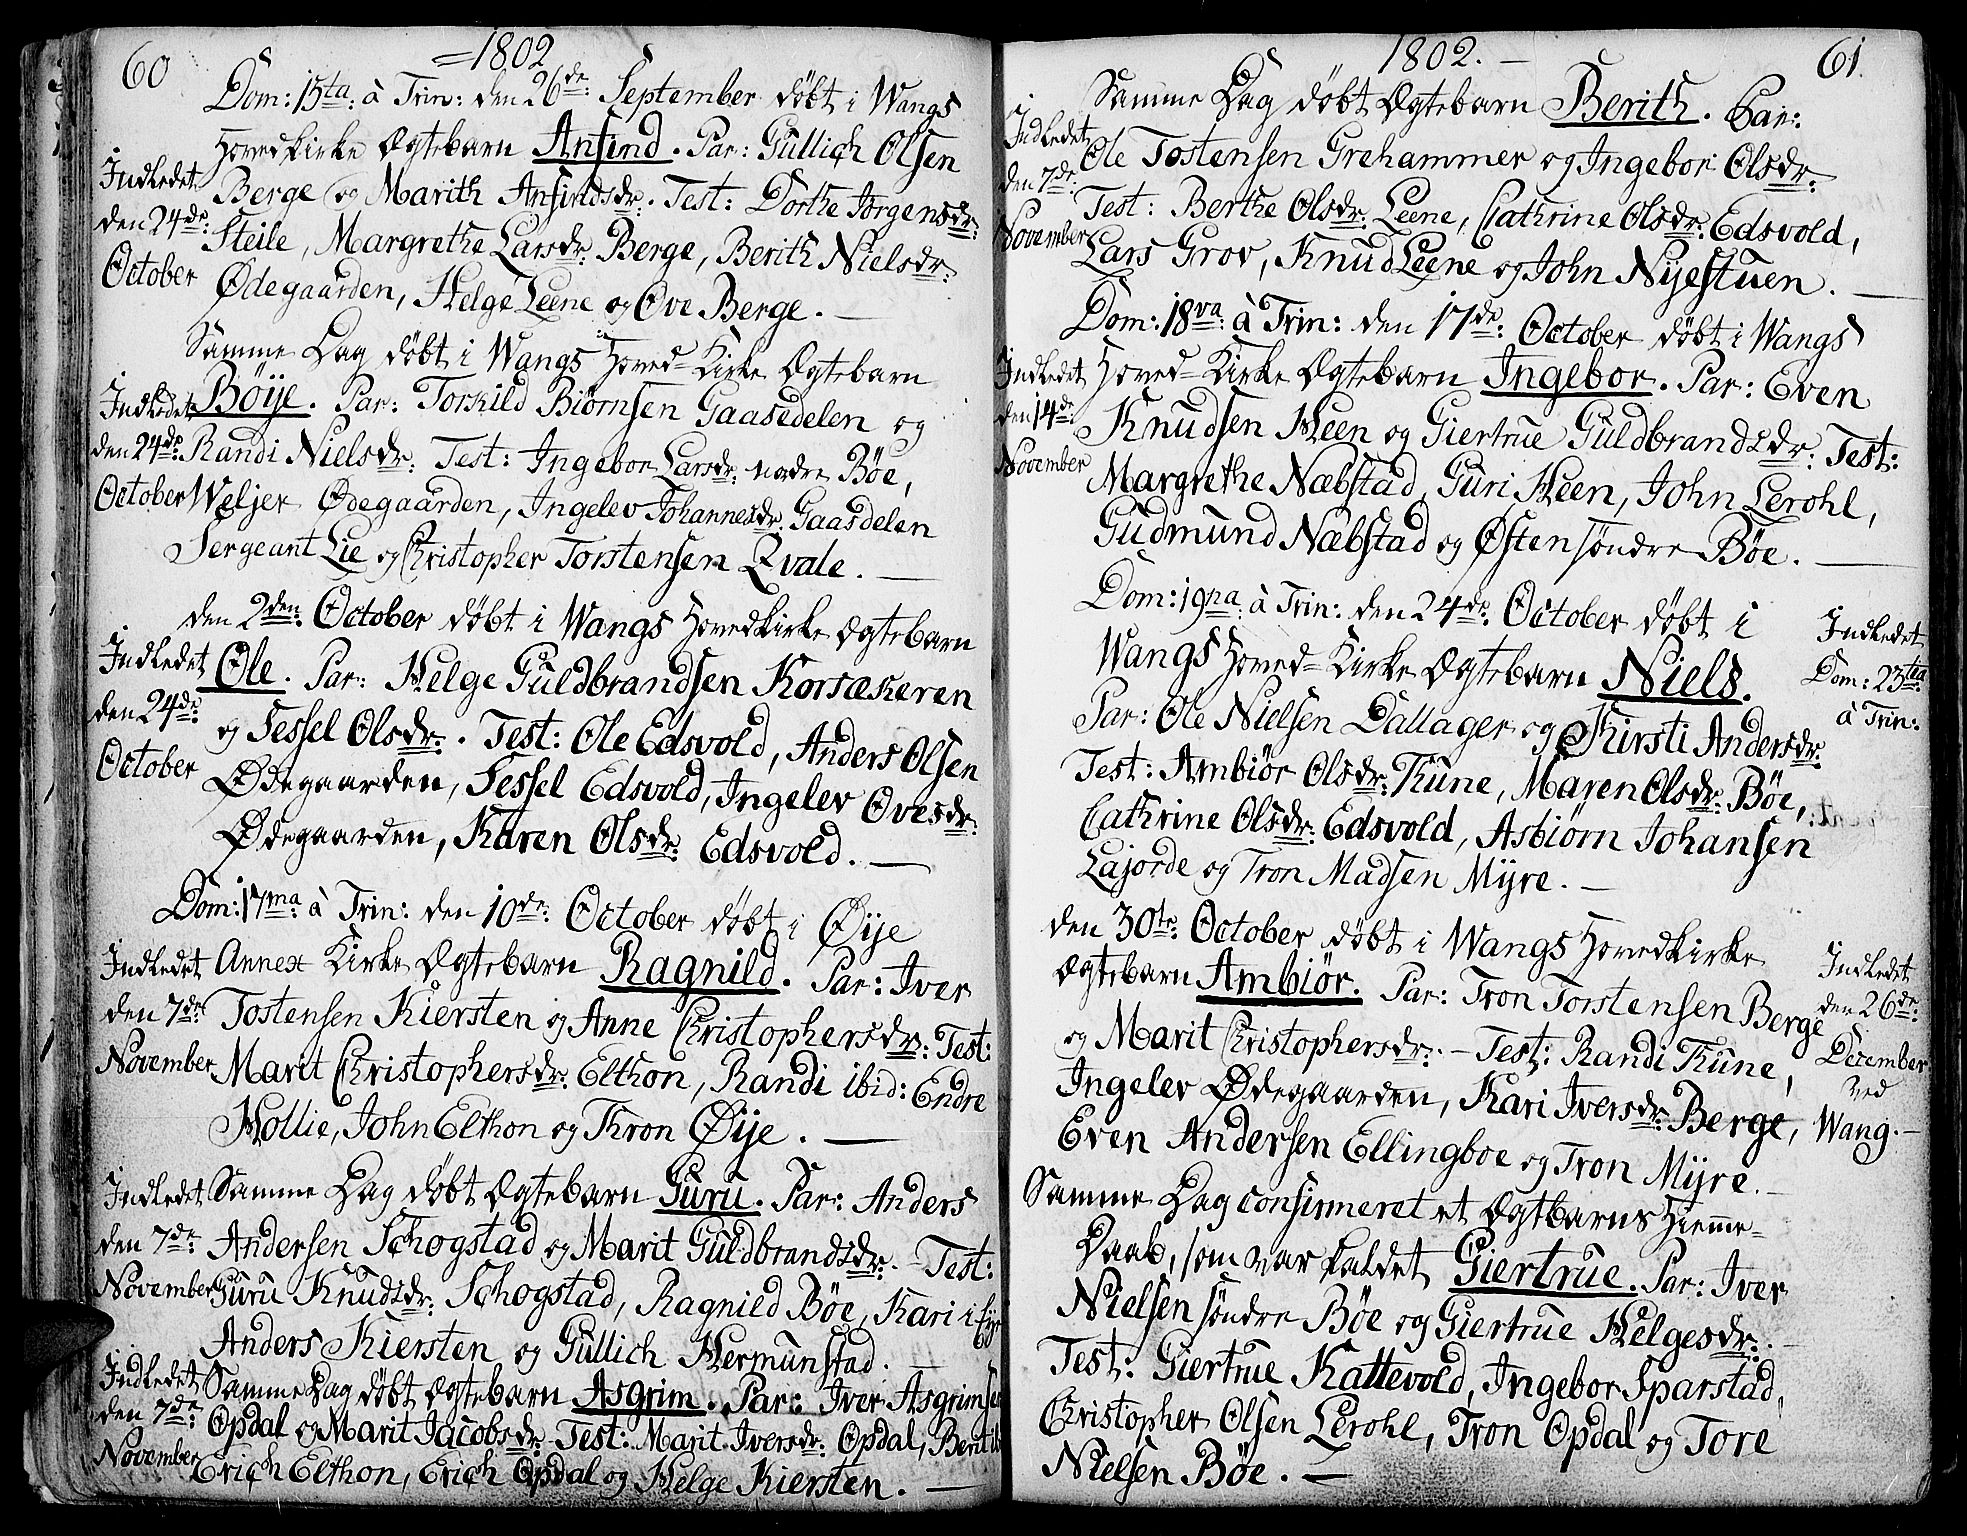 60
=1802
Dom: 15ta: à Trin: den 26de September døbt i Wangs
Hovedkirke Ægtebarn Ansind. Par: Güllich Olsen
Indledet
den 24de:
October
Berge og Marith Ansindsdr:. Test: Dorthe Jørgensdr:
Steile, Margrethe Larsdr: Berge, Berith Nielsdr:
Ødegaarden, Helge Leene og Ove Berge. —
Samme Dag døbt i Wangs Hoved=Kirke Ægtebarn
Indledet
den 24de:
October
Böije. Par: Torkild Biörnsen Gaasedelen og
Randi Nielsdr: Test: Ingebor Larsdr: nordre Böe,
Weljer Ødegaarden, Ingelev Johannesdr: Gaasdelen
Sergeant Lie og Christopher Torstensen Qvale. —
den 2den: October døbt i Wangs Hovedkirke Ægtebarn
Indledet
den 24de:
October
Ole. Par: Helge Güldbrandsen Korsækeren
og Sessel Olsdr:. Test: Ole Edsvold, Anders Olsen
Ødegaarden, Sessel Edsvold, Ingelev Ovesdr:
Ødegaarden, Karen Olsdr: Edsvold. —
Dom: 17ma: à Trin: den 10de: October døbt i Øije
Indledet
den 7de:
November
Annex Kirke Ægtebarn Ragnild. Par: Iver
Tostensen Kiersten og Anne Christophersdr: Test:
Marit Christophersdr: Elthon, Randi ibid: Endre
Hollie, John Elthon og Thron Øije. —
Indledet
den 7de:
November
Samme Dag døbt Ægtebarn Guru. Par: Anders
Andersen Schogstad og Marit Güldbrandsdr:. – Test:
Guru Knudsdr: Schogstad, Ragnild Böe, Kari i
Anders Kiersten og Güllich Hermunstad. —
Indledet
den 7de:
November
Samme Dag døbt Ægtebarn Asgrim. Par: Iver Asgrimsen
Opdal og Marit Jacobsdr: Test: Marit Iversdr: Opdal, Berit
Erich Elthon, Erich Opdal og Helge Kiersten. —
1802. —
61.
Samme Dag døbt Ægtebarn Berith. Par:
Indledet
den 7de:
November
Ole Tostensen Grehammer og Ingebor Olsdr:
Test: Berthe Olsdr: Leene, Cathrine Olsdr: Edsvold,
Lars Grov, Knud Leene og John Nÿestuen. —
Dom: 18va: à Trin: den 17de: October døbt i Wangs
Indledet
den 14de:
November
Hoved=Kirke Ægtebarn Ingebor. Par: Even
Knudsen Heen og Giertrue Güldbrandsdr: Test:
Margrethe Næbstad, Guri Heen, John Lerohl,
Gudmund Næbstad og Østen søndre Böe. —
Dom: 19na: à Trin: den 24de: October døbt i
Indledet
Dom: 23tia:
à Trin:
Wangs Hoved=Kirke Ægtebarn Niels.
Par: Ole Nielsen Dallager og Kirsti Andersdr:
Test: Ambiør Olsdr: Thune, Maren Olsdr: Böe,
Cathrine Olsdr: Edsvold, Asbiörn Johansen
Lajorde og Tron Madsen Mÿre. —
den 30te: October døbt i Wangs Hovedkirke
Indledet
den 26de:
December
ved
Wang. —
Ægtebarn Ambiör. Par: Tron Torstensen Berge
og Marit Christophersdr:. – Test: Randi Thune,
Ingelev Ødegaarden, Kari Iversdr: Berge,
Even Andersen Ellingboe og Tron Mÿre. —
Samme Dag confirmeret et Ægtbarns Hiemme=
Daab, som var kaldet Giertrue. Par: Iver
Nielsen søndre Böe og Giertrue Helgesdr:. –
Test: Giertrue Kattevold, Ingebor Sparstad,
Christopher Olsen Lerohl, Tron Opdal og Tore
Nielsen Böe. —